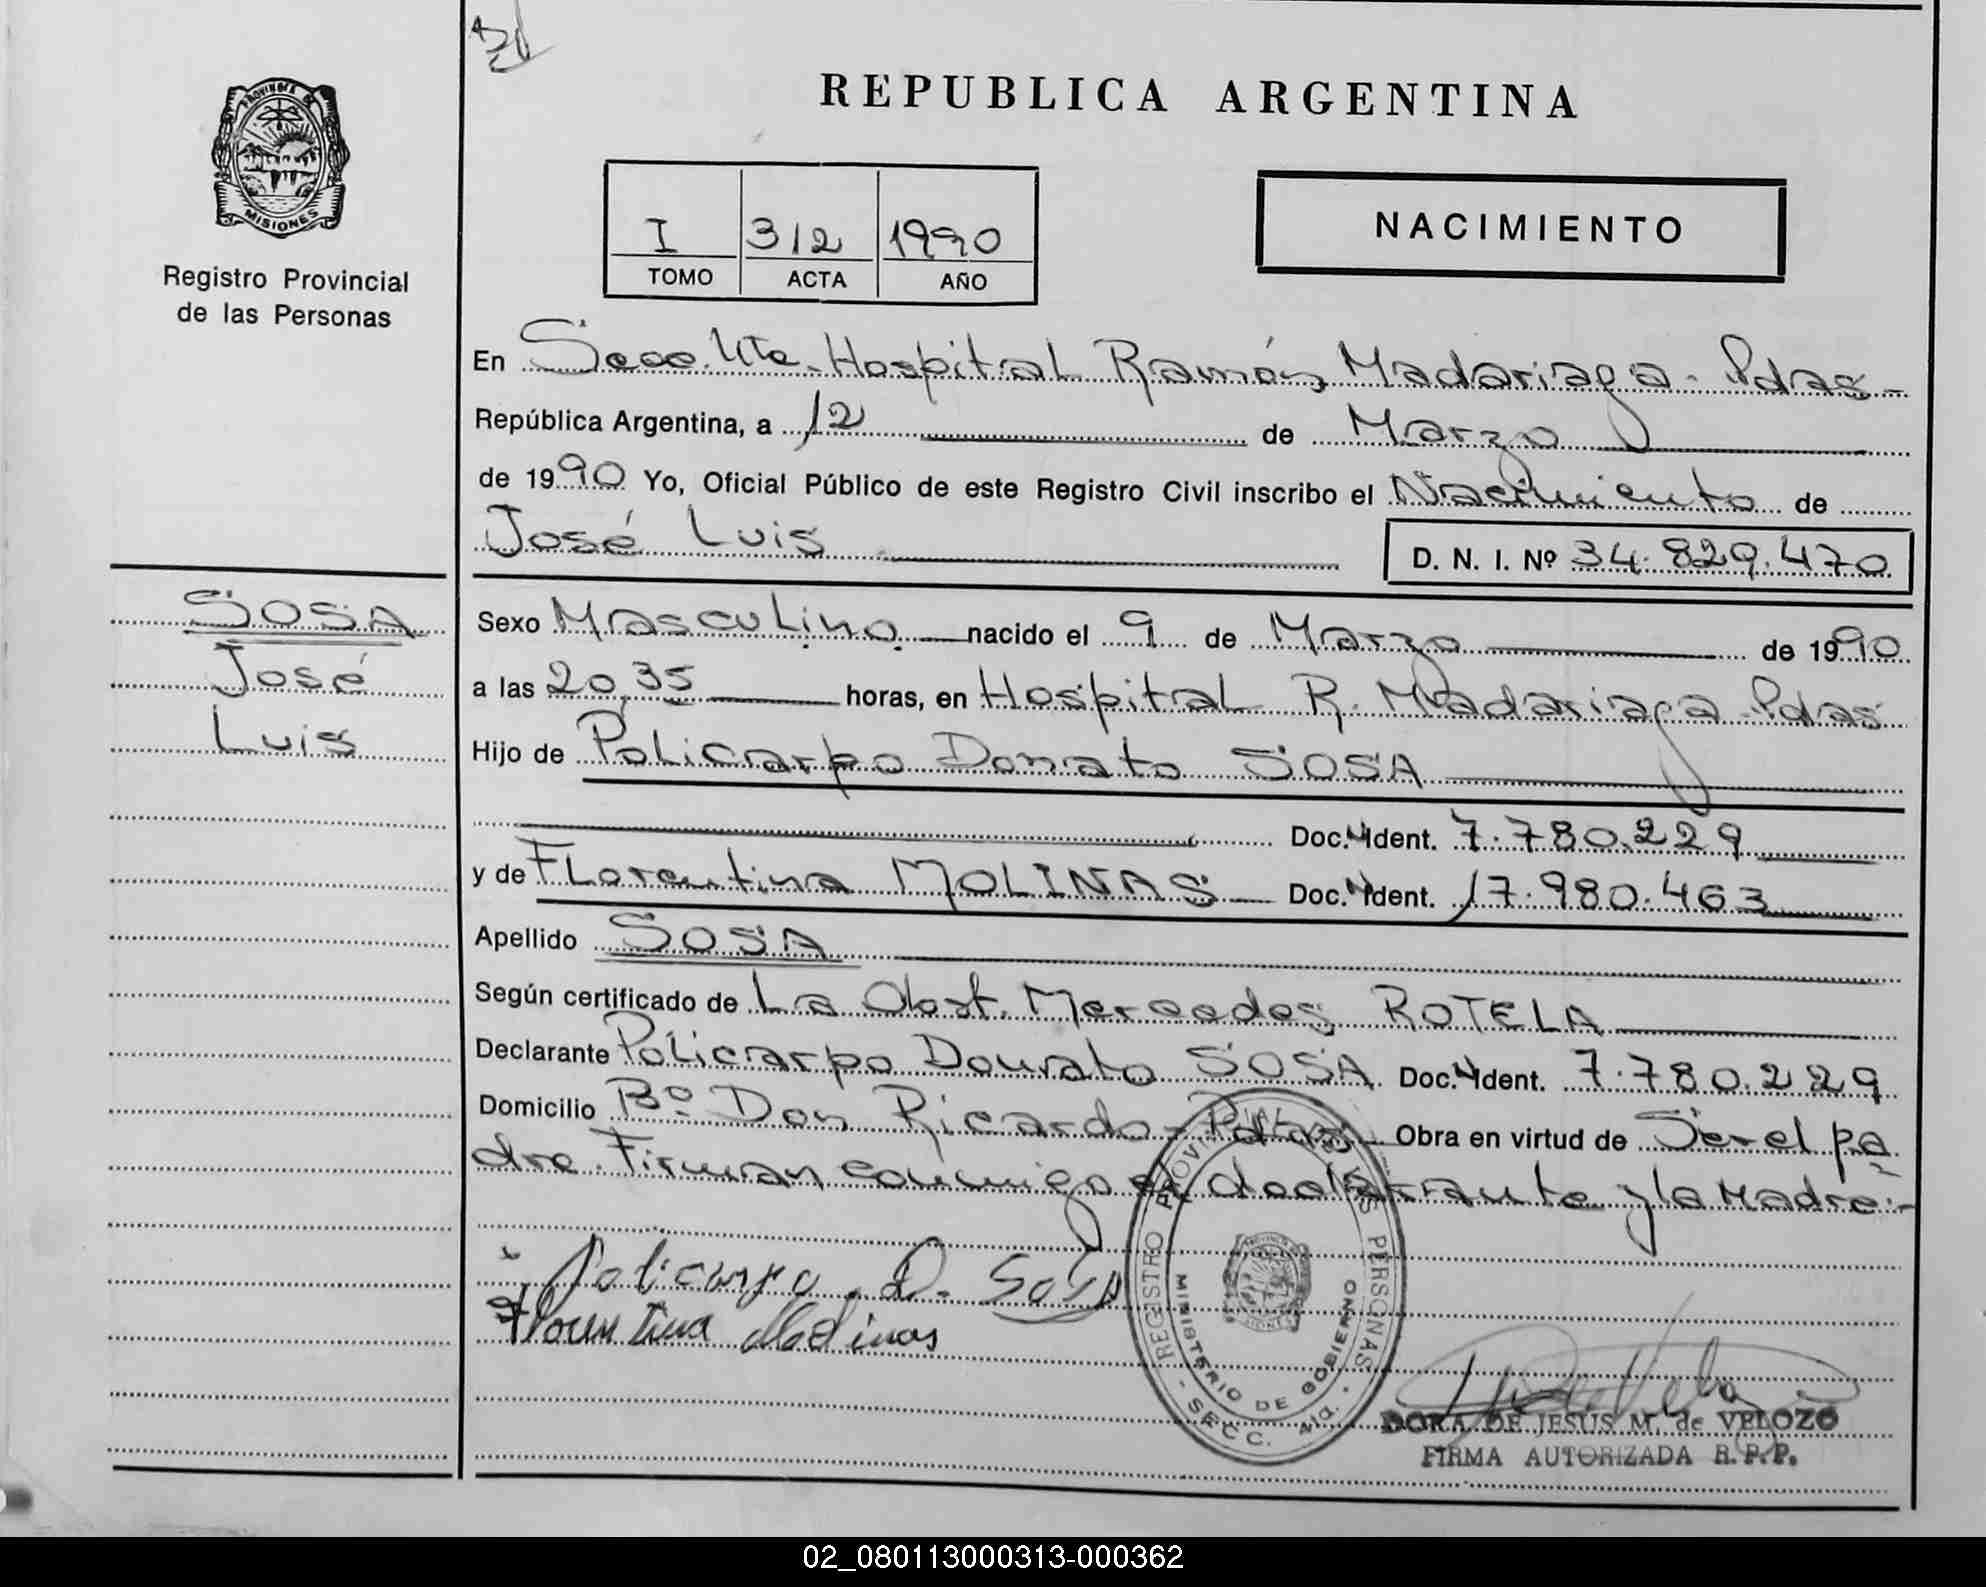 REPUBLICA ARGENTINA
PROVINCIA DE
MISIONES
Registro Provincial
de las Personas
I 312 1990
TOMO ACTA AÑO
NACIMIENTO
En Secc. 4ta. Hospital Ramón Madariaga - Pdas -
República Argentina, a 12 de Marzo
de 1990 Yo, Oficial Público de este Registro Civil inscribo el Nacimiento de
José Luis D. N. I. Nº 34.829.470
SOSA
José
Luis
Sexo Masculino nacido el 9 de Marzo de 1990
a las 20,35 horas, en Hospital R. Madariaga - Pdas
Hijo de Policarpo Donato SOSA
Doc. Ident. 7.780.229
y de Florentina MOLINAS Doc. Ident. 17.980.463
Apellido SOSA
Según certificado de La Obst. Mercedes ROTELA
Declarante Policarpo Donato SOSA Doc. Ident. 7.780.229
Domicilio Bº Don Ricardo - Pdas - Obra en virtud de Ser el pa
dre. Firman conmigo el declarante y la Madre.-
Policarpo D. Sosa
Florentina Molinas
REGISTRO PROVINCIAL DE LAS PERSONAS
MINISTERIO DE GOBIERNO
- SECC. 4ta. -
DORA DE JESUS M. de VELOZO
FIRMA AUTORIZADA R.P.P.
02_080113000313-000362